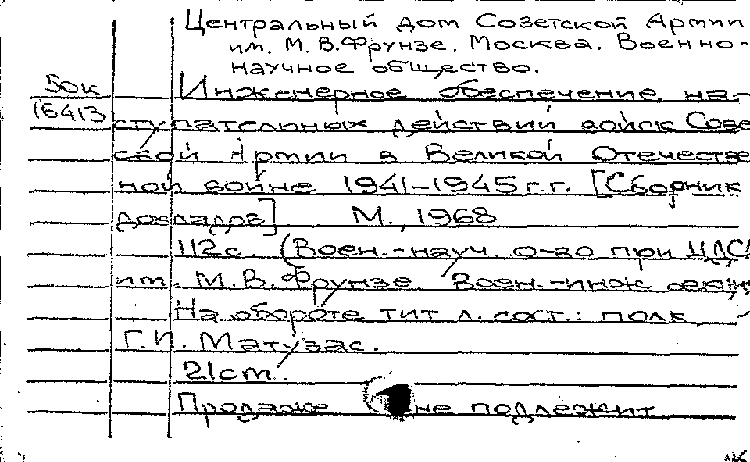 Центральный дом Советской Армии
им. М.В.Фрунзе. Москва. Военно-
научное общество.
50к Инженерное обеспечение на-
16413 ступательных действий войск Сове
ской Армии в Великой Отечестве
ной войне 1941-1945 г.г. [Сборник
докладов] М., 1968
112с. (Воен.-науч. о-во при ЦДСА
им. М.В. Фрунзе. Воен.-инж секц
На обороте тит л. сост.: полк
Г.И. Матузас.
21cm.
Продаже не подлежит